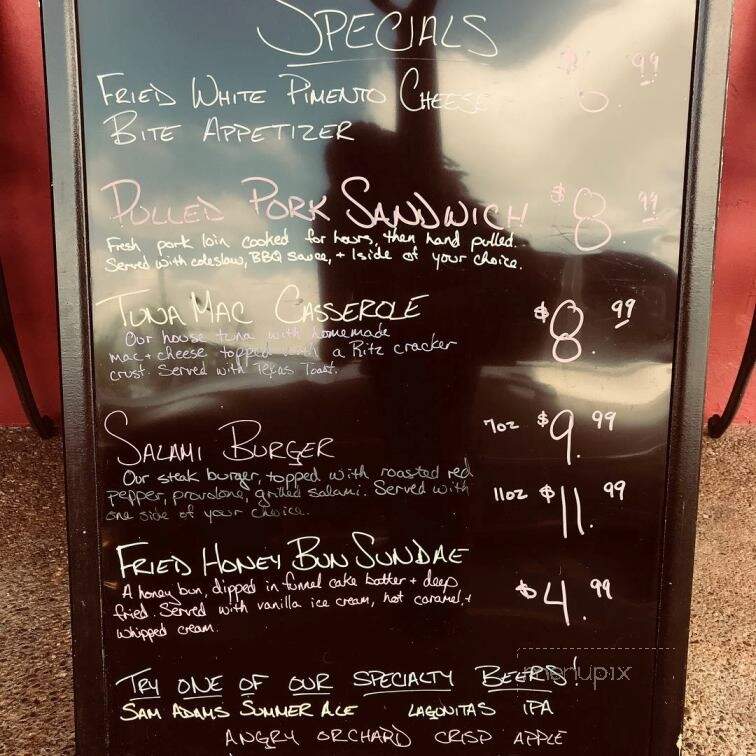 SPECIALS
FRIED WHITE PIMENTO CHEESE
BITE APPETIZER
PULLED PORK SANDWICH $8.99
Fresh pork loin cooked for hours, then hand pulled.
Served with coleslaw, BBQ sauce, + 1side of your choice.
TUNA MAC CASSEROLE $8.99
Our house tuna with homemade
mac + cheese topped with a Ritz cracker
crust. Served with Texas Toast.
SALAMI BURGER 7oz $9.99
Our steak burger, topped with roasted red
pepper, provolone, grilled salami. Served with
one side of your choice.
11oz $11.99
FRIED HONEY BUN SUNDAE
A honey bun, dipped in funnel cake batter + deep
fried. Served with vanilla ice cream, hot caramel, +
whipped cream.
$4.99
TRY ONE OF OUR SPECIALTY BEERS!
SAM ADAMS SUMMER ALE LAGUNITAS IPA
ANGRY ORCHARD CRISP APPLE
menupix